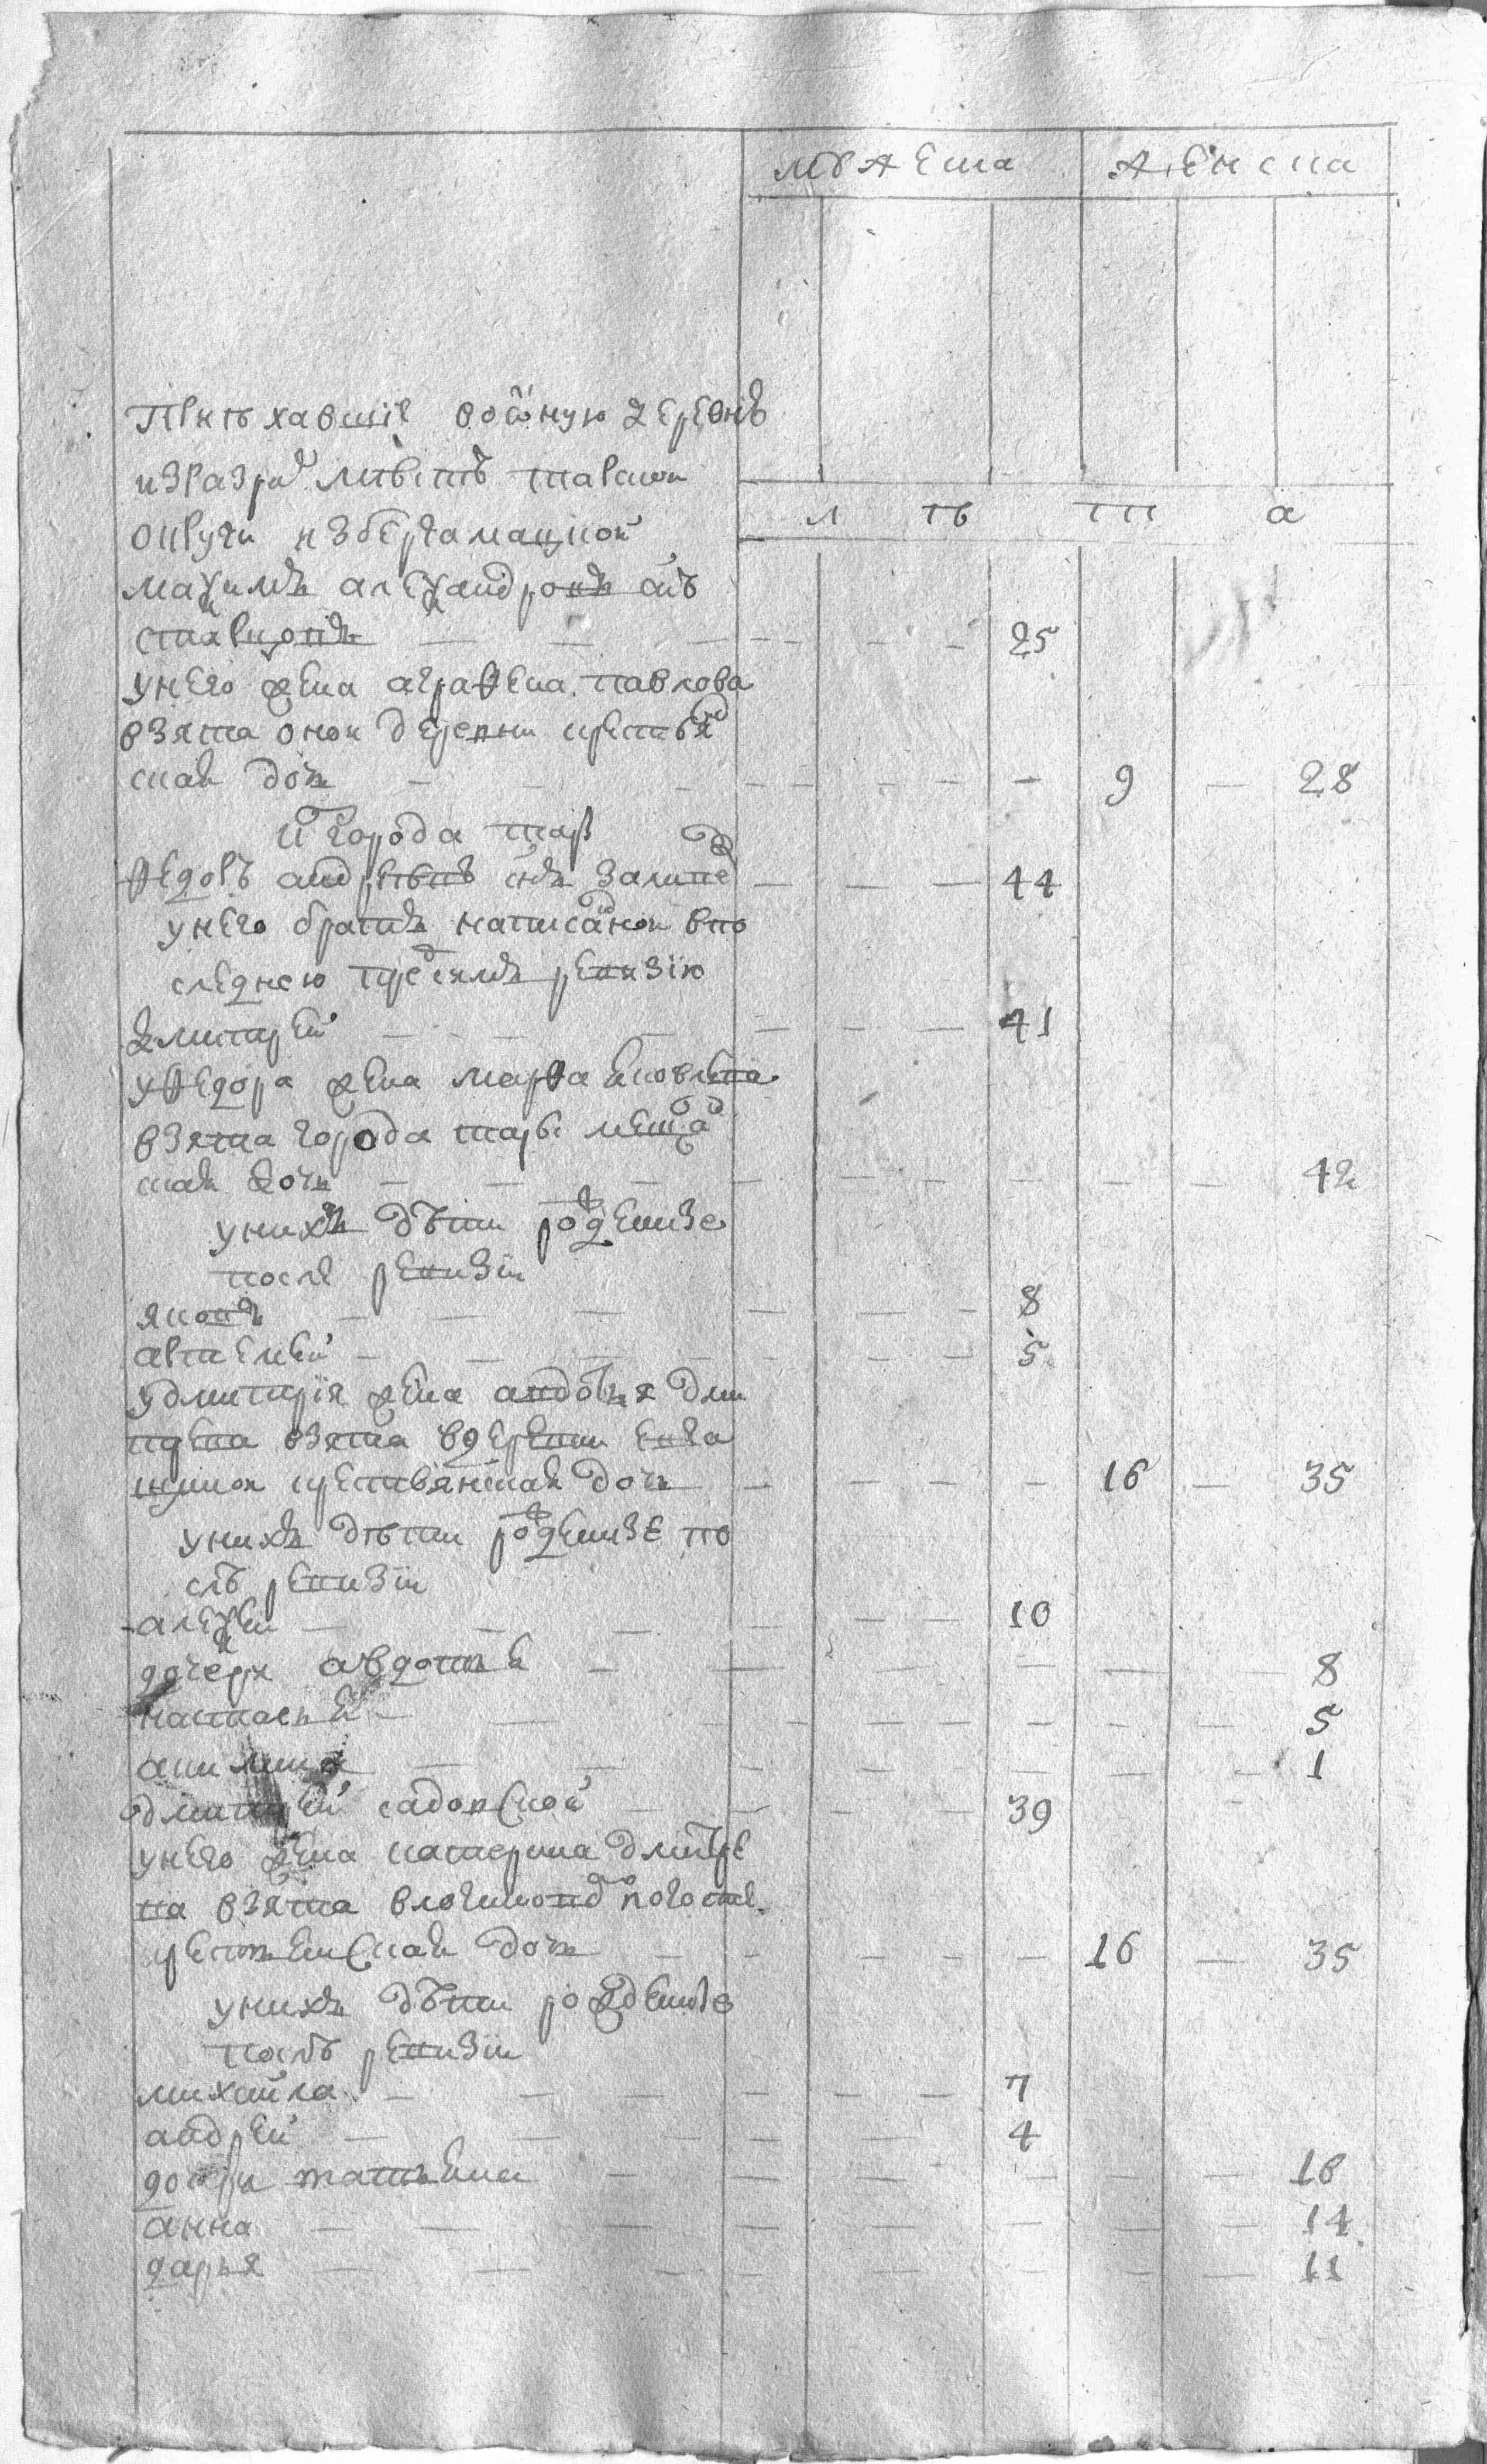 мужеска женска
Приѣхавшiе воѿную деревнѣ
изразныхъ мѣстъ тарскои
округи избергамацкой
л ѣ т а
маѯимъ алеѯандровъ сн҃ъ
25
унего жена аграфена павлова
взята онои деревни крестья
ская дочь — 9 — 28
и҆ѿ города тары
Ѳедоръ андрѣевъ сн҃ъ 44
унего братъ написанои впо
следнею пред симъ ревизiю
дмитрей — 41
уѲедора жена марѲа яковлева
взята города тары мещан
ская дочь — 42
унихъ дѣти рожденые
после ревизiи
яковъ — 8
артемей — 5
удмитрiя жена авдотья дми
трева взята вдеревни
крестьянская дочь — 16 — 35
унихъ дѣти рожденые по
слѣ ревизiи
алеѯей — 10
дочери авдотья — 8
настасья — 5
акилина — 1
дмитрей садовской — 39
унего жена катерина дмитре
ва взята влогиновѣ погосте
крестьенская дочь — 16 — 35
унихъ дѣти рожденые
послѣ ревизiи
михаила — 7
андрей — 4
дочери татьяна — 16
анна — 14
дарья — 11